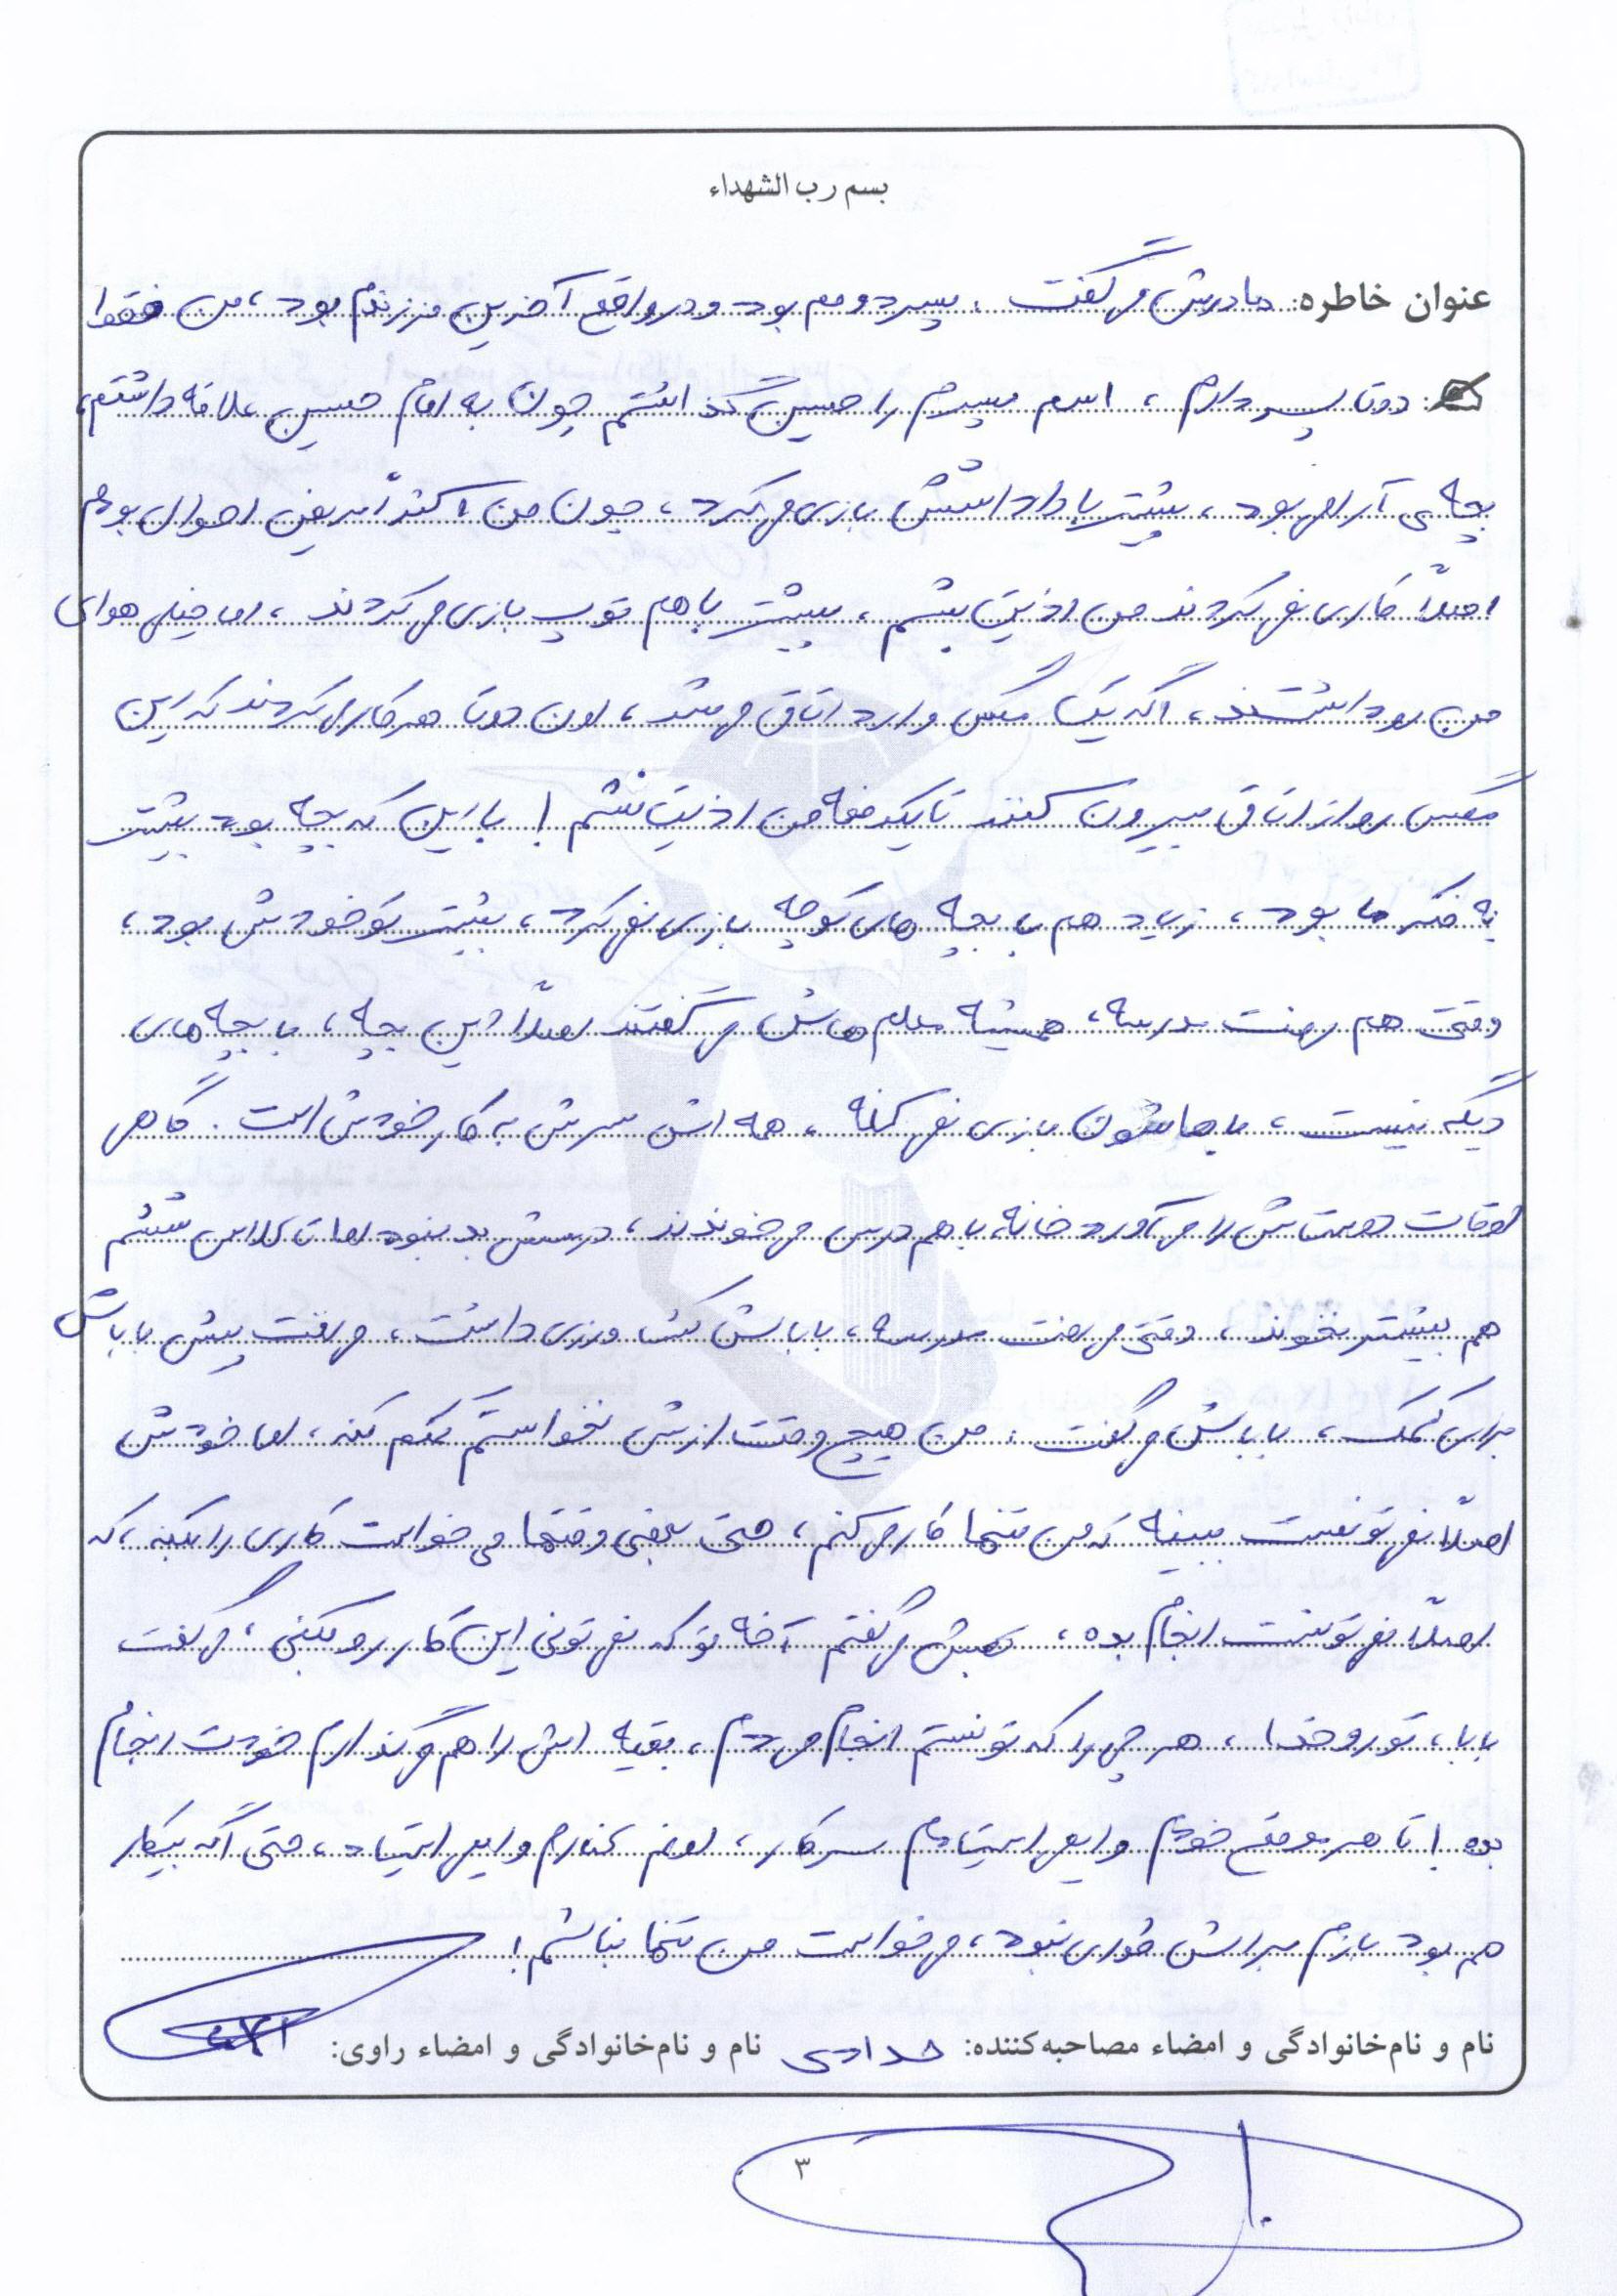 بسم رب الشهداء
عنوان خاطره: مادرش می گفت: پسر دومم بود و در واقع آخرین فرزندم بود، من فقط
دوتا پسر دارم، اسم پسرم را حسین گذاشتم چون به امام حسین علاقه داشتم،
بچه ی آرامی بود، بیشتر با داداشش بازی می کرد، چون من اکثراً مریض احوال بودم
اصلاً کاری نمی کردند من اذیت بشم، بیشتر با هم توپ بازی می کردند، اما خیلی هوای
من رو داشتند، اگه یک مگس وارد اتاق می شد، اون دوتا هر کاری می کردند که این
مگس رو از اتاق بیرون کنند تا یکدفعه من اذیت نشم! با این که بچه بود بیشتر
به فکر ما بود، زیاد هم با بچه های کوچه بازی نمی کرد، بیشتر تو خودش بود،
وقتی هم رفت مدرسه، همیشه معلم هاش می گفتند اصلاً این بچه، با بچه های
دیگه نیست، باهاشون بازی نمی کنه، همه اش سرش به کار خودش است. گاهی
اوقات دوستاش را می آورد خانه، با هم درس می خوندند، درسش بد نبود اما تا کلاس ششم
هم بیشتر نخوند، وقتی می رفت مدرسه، باباش کشاورزی داشت، می رفت پیش باباش
برای کمک، باباش می گفت: من هیچ وقت ازش نخواستم کمکم کنه، اما خودش
اصلاً نمی تونست ببینه که من تنها کار می کنم، حتی بعضی وقتها می خواست کاری را بکنه، که
اصلاً نمی تونست انجام بده، بهش می گفتم آخه تو که نمی تونی این کار رو بکنی، می گفت
بابا، تو رو خدا، هر چی را که تونستم انجام می دم، بقیه اش را هم می گذارم خودت انجام
بده! تا هر موقع خودم وایمی ایستادم سر کار، اونم کنارم وایمی ایستاد، حتی اگه بیکار
هم بود بازم براش فرقی نبود، می خواست من تنها نباشم!
نام و نام‌خانوادگی و امضاء مصاحبه‌کننده: حدادی نام و نام‌خانوادگی و امضاء راوی:
۳